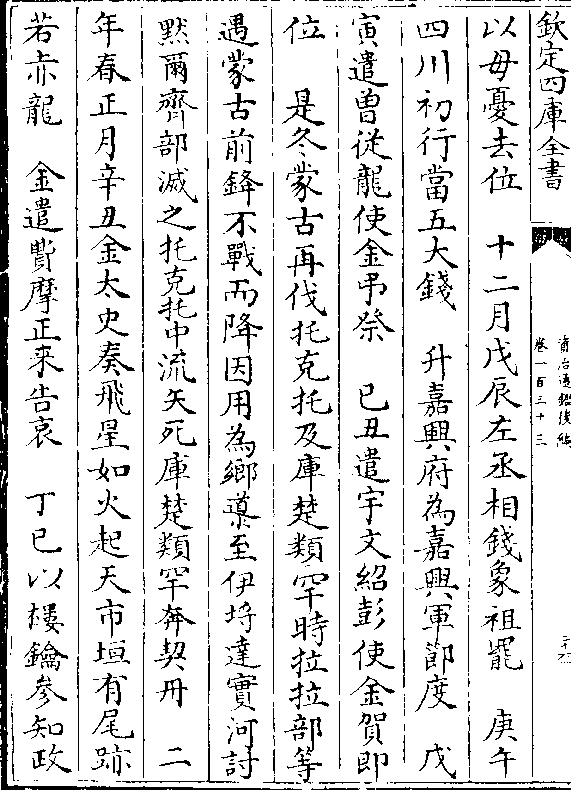 欽定四庫全書
資治通鑑後編
卷一百三十三
以母憂去位　十二月戊辰左丞相錢象祖罷　庚午
四川初行當五大錢　升嘉興府為嘉興軍節度　戊
寅遣曾從龍使金弔祭　已丑遣宇文紹彭使金賀即
位　是冬蒙古再伐托克托及庫楚類罕時拉拉部等
遇蒙古前鋒不戰而降因用為鄉導至伊埒達實河討
默爾齊部滅之托克托中流矢死庫楚類罕奔契丹　二
年春正月辛丑金太史奏飛星如火起天市垣有尾跡
若赤龍　金遣費摩正来告哀　丁巳以樓鑰參知政